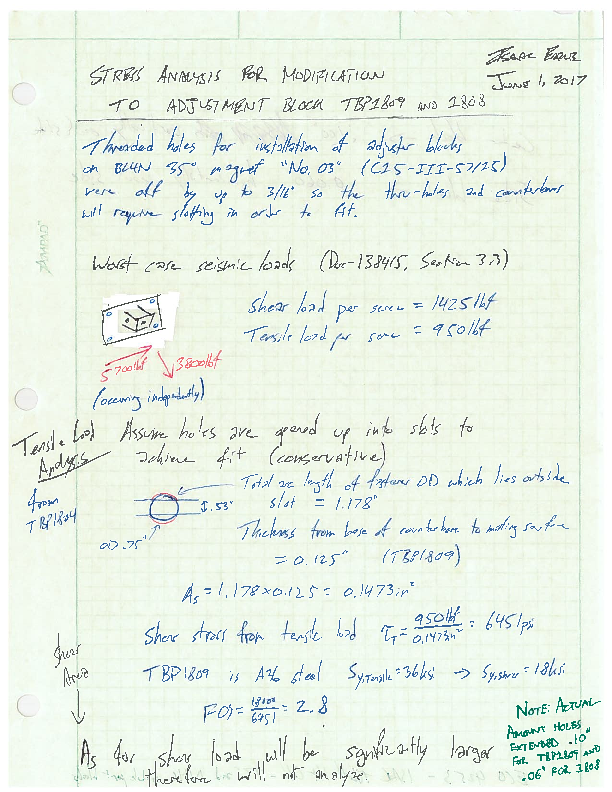 June 1, 2017
STRESS ANALYSIS FOR MODIFICATION
TO ADJUSTMENT BLOCK TBP1809 AND 1808
Threaded holes for installation of adjuster blocks
on BL4N 35" magnet "No. 03" (C25-III-57/15)
were off by up to 3/16" so the thru-holes and counterbores
will require slotting in order to fit.
AMPAD
Worst case seismic loads (Doc-138415, Section 3.3)
Shear load per screw = 1425 lbf
Tensile load per screw = 950 lbf
5700 lbf
3800 lbf
(occuring independently)
Tensile Load
Analysis
from
TBP1804
Assume holes are opened up into slots to
achieve fit (conservative)
Total arc length of fastener OD which lies outside
slot = 1.178"
.53"
OD .75"
Thickness from base of counterbore to mating surface
= 0.125" (TBP1809)
As = 1.178 x 0.125 = 0.1473 in²
Shear stress from tensile load τT = 950 lbf / 0.1473 in² = 6451 psi
Shear
Area
TBP1809 is A36 steel Sy,Tensile = 36 ksi → Sy,shear = 18 ksi
FOS = 18000 / 6451 = 2.8
As for shear load will be significantly larger
therefore will not analyze.
NOTE: ACTUAL
AMOUNT HOLES
EXTENDED .10"
FOR TBP1809 AND
.06" FOR 1808